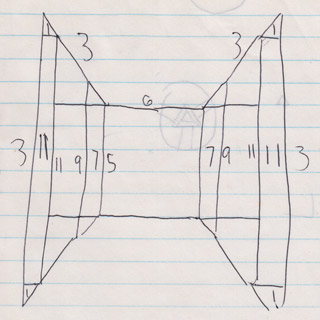 1 1
3 3
6
3 11 11 9 7 5 7 9 11 11 3
1 1